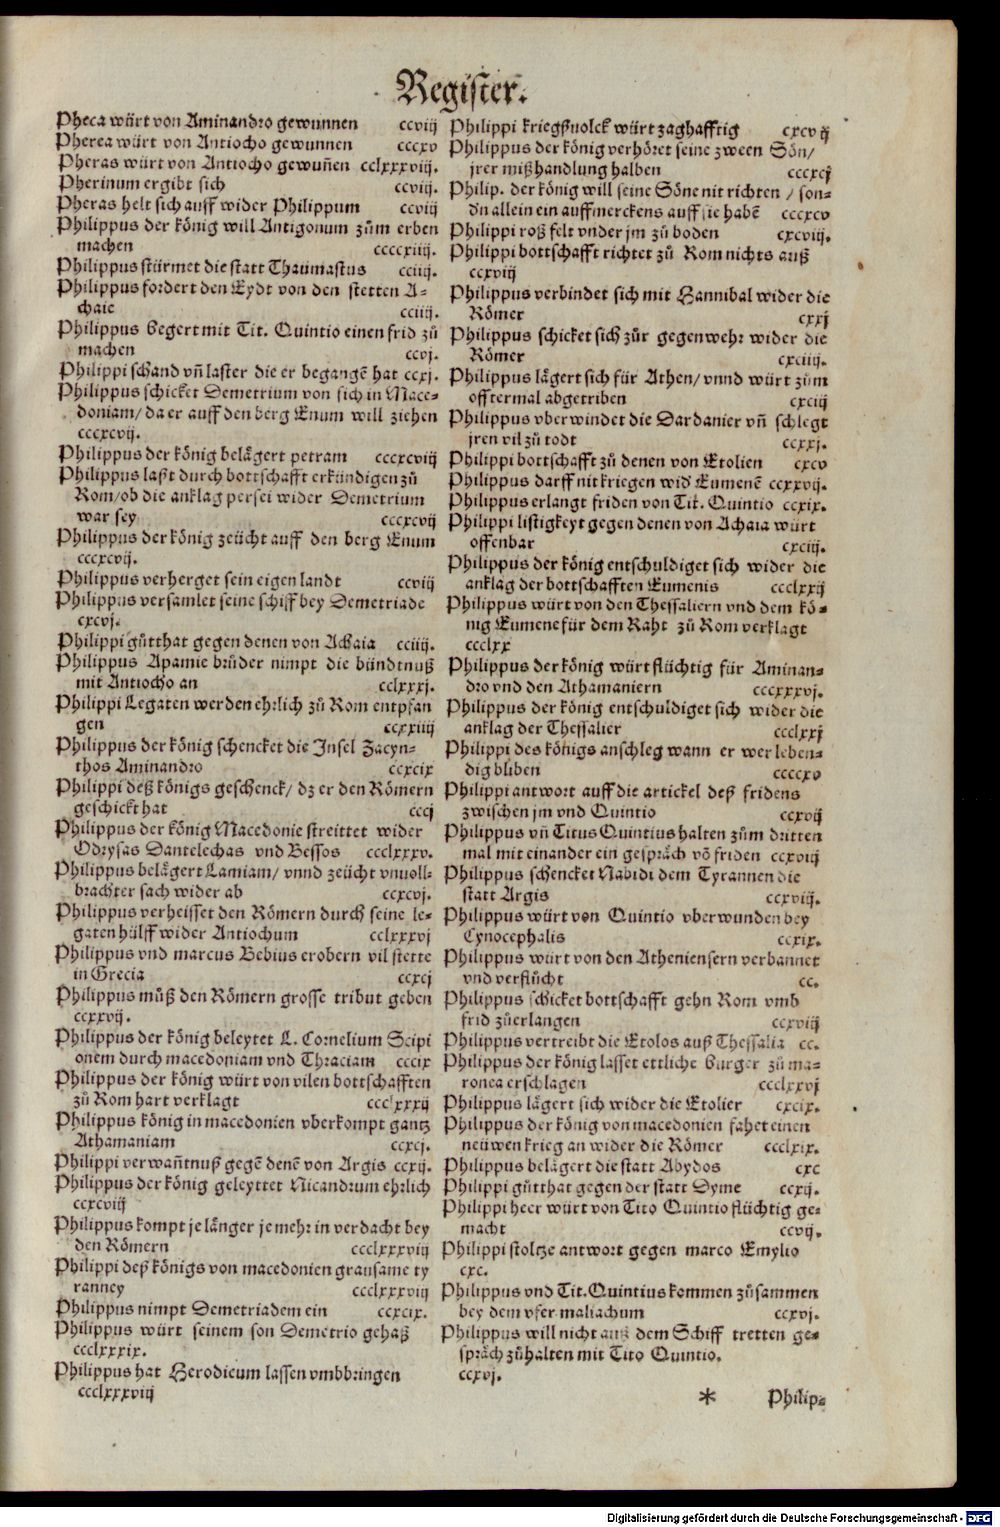 Register.
Pheca würt von Aminandro gewunnen ccviij
Pherea würt von Antiocho gewunnen cccxv
Pheras würt von Antiocho gewuñen cclxxxviij.
Pherinum ergibt sich ccviij.
Pheras helt sich auff wider Philippum ccviij
Philippus der könig will Antigonum zům erben
machen ccccxiiij.
Philippus stürmet die statt Thaumastus cciiij.
Philippus fordert den Eydt von den stetten A-
chaie cciiij.
Philippus begert mit Tit. Quintio einen frid zů
machen ccvj.
Philippi schand vñ laster die er begangē hat ccxj.
Philippus schicket Demetrium von sich in Mace-
doniam/ da er auff den berg Enum will ziehen
cccxcvij.
Philippus der könig belägert petram cccxcviij
Philippus laßt durch bottschafft erkündigen zů
Rom/ ob die anklag persei wider Demetrium
war sey cccxcvij
Philippus der könig zeücht auff den berg Enum
cccxcvij.
Philippus verherget sein eigen landt ccviij
Philippus versamlet seine schiff bey Demetriade
cxcvj.
Philippi gůtthat gegen denen von Achaia cciiij.
Philippus Apamie brüder nimpt die bündtnuß
mit Antiocho an cclxxxj.
Philippi Legaten werden ehrlich zů Rom entpfan
gen ccxxiiij
Philippus der könig schencket die Insel Zacyn-
thos Aminandro ccxcix
Philippi deß königs geschenck/ dz er den Römern
geschickt hat cccj
Philippus der könig Macedonie streittet wider
Odrysas Dantelechas vnd Bessos ccclxxxv.
Philippus belägert Lamiam/ vnnd zeücht vnuoll-
brachter sach wider ab ccxcvj.
Philippus verheisset den Römern durch seine le-
gaten hülff wider Antiochum cclxxxvj
Philippus vnd marcus Bebius erobern vil stette
in Grecia ccxcj
Philippus můß den Römern grosse tribut geben
ccxxvij.
Philippus der könig beleytet L. Cornelium Scipi
onem durch macedoniam vnd Thraciam cccix
Philippus der könig würt von vilen bottschafften
zů Rom hart verklagt ccclxxxij
Philippus könig in macedonien vberkompt gantz
Athamaniam ccxcj.
Philippi verwañtnuß gegē denē von Argis ccxij.
Philippus der könig geleyttet Nicandrum ehrlich
ccxcviij
Philippus kompt je länger je mehr in verdacht bey
den Römern ccclxxxviij
Philippi deß königs von macedonien grausame ty
ranney ccclxxxviij
Philippus nimpt Demetriadem ein ccxcix.
Philippus würt seinem son Demetrio gehaß
ccclxxxix.
Philippus hat Herodicum lassen vmbbringen
ccclxxxviij
Philippi kriegßuolck würt zaghafftig cxcvij
Philippus der könig verhöret seine zween Sön/
jrer mißhandlung halben cccxcj
Philip. der könig will seine Söne nit richten / son-
dn allein ein auffmerckens auff sie habē cccxcv
Philippi roß felt vnder jm zů boden cxcviij.
Philippi bottschafft richtet zů Rom nichts auß
ccxviij
Philippus verbindet sich mit Hannibal wider die
Römer cxxj
Philippus schicket sich zůr gegenwehr wider die
Römer cxciiij.
Philippus lägert sich für Athen/ vnnd würt zům
offtermal abgetriben cxciij
Philippus vberwindet die Dardanier vñ schlegt
jren vil zů todt ccxxj.
Philippi bottschafft zů denen von Etolien cxcv
Philippus darff nit kriegen wid Eumenē ccxxvij.
Philippus erlangt friden von Tit. Quintio ccxix.
Philippi listigkeyt gegen denen von Achaia würt
offenbar cxciij.
Philippus der könig entschuldiget sich wider die
anklag der bottschafften Eumenis ccclxxij
Philippus würt von den Thessaliern vnd dem kö-
nig Eumene für dem Raht zů Rom verklagt
ccclxx
Philippus der könig würt flüchtig für Aminan-
dro vnd den Athamaniern cccxxxvj.
Philippus der könig entschuldiget sich wider die
anklag der Thessalier ccclxxj
Philippi des königs anschleg wann er wer leben-
dig bliben ccccxv
Philippi antwort auff die artickel deß fridens
zwischen jm vnd Quintio ccxvij
Philippus vñ Titus Quintius halten zům dritten
mal mit einander ein gespräch vō friden ccxviij
Philippus schencket Nabidi dem Tyrannen die
statt Argis ccxviij.
Philippus würt von Quintio vberwunden bey
Cynocephalis ccxix.
Philippus würt von den Atheniensern verbannet
vnd verflücht cc.
Philippus schicket bottschafft gehn Rom vmb
frid zůerlangen ccxviij
Philippus vertreibt die Etolos auß Thessalia cc.
Philippus der könig lasset ettliche burger zů ma-
ronea erschlagen ccclxxvj
Philippus lägert sich wider die Etolier cxcix.
Philippus der könig von macedonien fahet einen
neüwen krieg an wider die Römer ccclxix.
Philippus belägert die statt Abydos cxc
Philippi gůtthat gegen der statt Dyme ccxij.
Philippi heer würt von Tito Quintio flüchtig ge-
macht ccvij.
Philippi stoltze antwort gegen marco Emylio
cxc.
Philippus vnd Tit. Quintius kommen zůsammen
bey dem vfer maliachum ccxvj.
Philippus will nicht auß dem Schiff tretten ge-
spräch zůhalten mit Tito Quintio.
ccxvj.
* Philip-
Digitalisierung gefördert durch die Deutsche Forschungsgemeinschaft - DFG